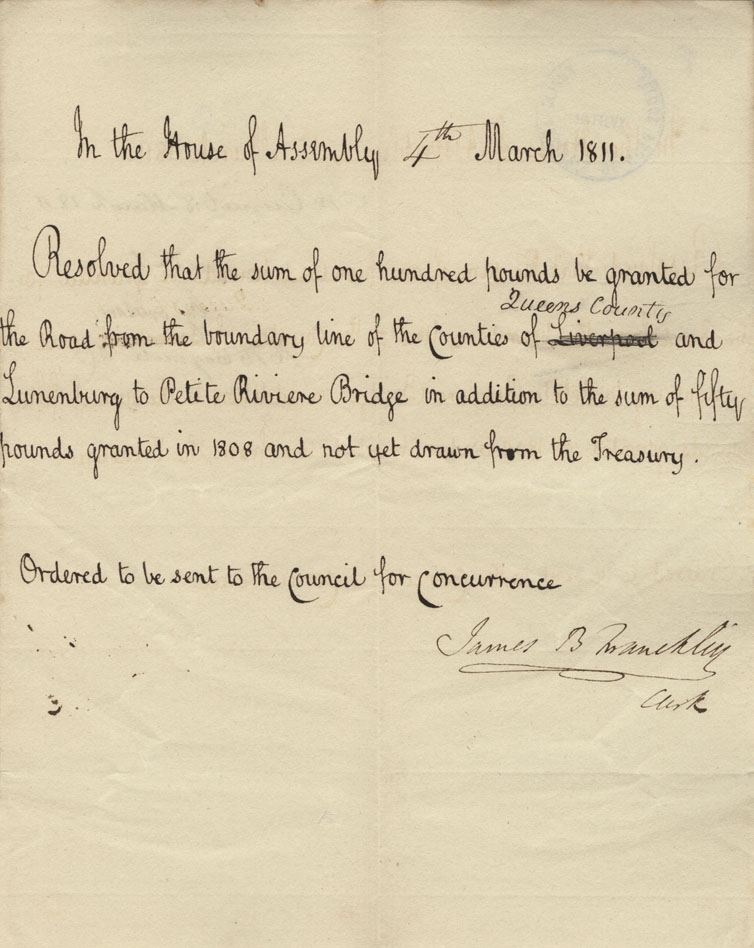 In the House of Assembly 4th March 1811.
Resolved that the sum of one hundred pounds be granted for
Queens County
the Road from the boundary line of the Counties of Liverpool and
Lunenburg to Petite Riviere Bridge in addition to the sum of fifty
pounds granted in 1808 and not yet drawn from the Treasury.
Ordered to be sent to the Council for Concurrence
James B Franklin
Clerk